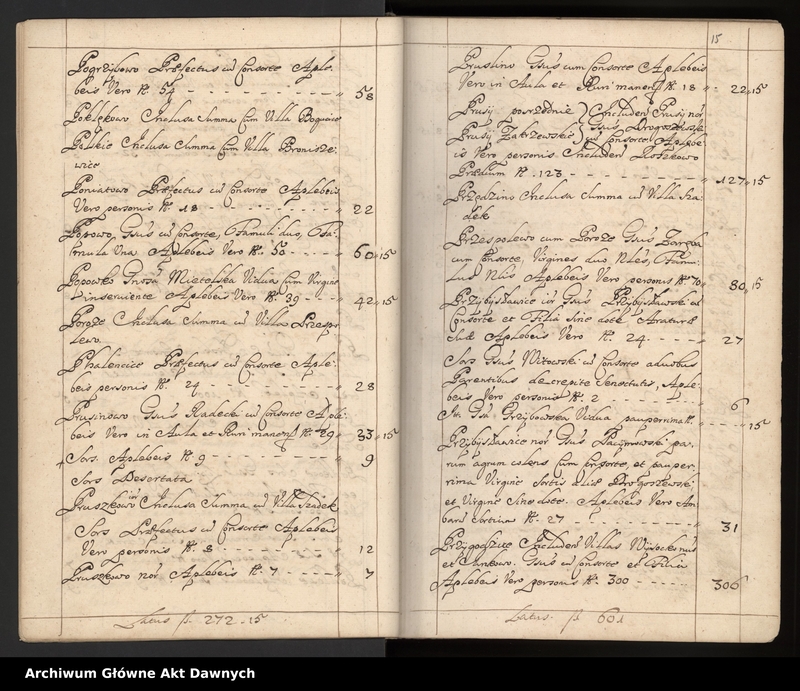 Pogrzybowo Præfectus cū Consorte Aple-
beis Vero N. 54 - - - - - - - - - - - - " 58
Poklękowo Inclusa Summa Cum Villa
Polskie Inclusa Summa Cum Villa Bronisze-
wice
Poniatowo Præfectus cū Consorte Aplebeis
Vero personis N. 18 - - - - - - - - " 22
Popowo, Gsūs cū Consorte, Famuli duo, Fa-
mula Una Aplebeis Vero N. 50 - - - - " 60 " 15
Popowko Gnosa Mielelska Vidua Cum Virgine
inserviente Aplebeis Vero N. 39 - - - - " 42 " 15
Poroże Inclusa Summa cū Villa Przespo
lewo.
Phalencice Præfectus cū Consorte Aple-
beis personis N. 24 - - - - - - - - " 28
Prusinowo Gsūs Radecki cū Consorte Aple-
beis Vero in Aula et Ruri manen N. 29 " 33 " 15
+ Sors. Aplebeis N. 9 - - - - - - - - " 9
Sors Desertata
Pruszkowo Inclusa Summa cū Villa Szadek
Sors Præfectus cū Consorte Aplebeis
Vero personis N. 8 - - - - - - - - " 12
Pruszkowo nor Aplebeis N. 7 - - - - - " 7
Latus f. 272 " 15
15
Pruslino Gsūs cum Consorte Aplebeis
Vero in Aula et Ruri manen N. 18 " 22 " 15
Prusy posrzednie Includen Prusy nor
Prusy Zakrzewskie Gsūs Drogoszewski
cū Consorte Aplebe-
is Vero personis Includen Koszkowo
Prædium N. 123 - - - - - - - - " 127 " 15
Przedzino Inclusa Summa cū Villa Sza-
dek
Przespolewo cum Poroże Gsūs Zaręba
cum Consorte, Virgines duo Nles, Famu-
lus Nlis Aplebeis Vero personis N. 70 " 80 " 15
Przybysławice Gsūs Przybysławski cū
Consorte et Filia sine dote Aratura
suæ Aplebeis Vero N. 24 - - - - " 27
Sors Gsūs Witowski cū Consorte aduobus
Parentibus decrepitæ Senectutis, Aple-
beis Vero personis N. 2 - - - - - " 6
Gsa Grzybowska Vidua pauperrima - - " 15
Przybysławice nor Gsūs pa-
rum agrum colens Cum Consorte, et pauper-
rima Virgine Sortis suæ Drogoszewski
et Virgine Sine dote. Aplebeis Vero Am
barū Sortium N. 27 - - - - - - - " 31
Przygodzice Includen Villas Wysocko nus
et Jankowo. Gsūs cū Consorte et Filia
Aplebeis Vero personis N. 300 - - - - - 306
Latus. f 601
Archiwum Główne Akt Dawnych